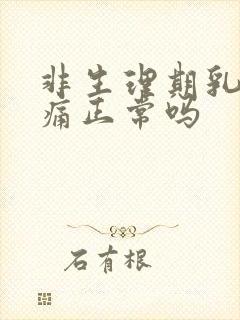 非生理期乳
痛正常吗
石有根